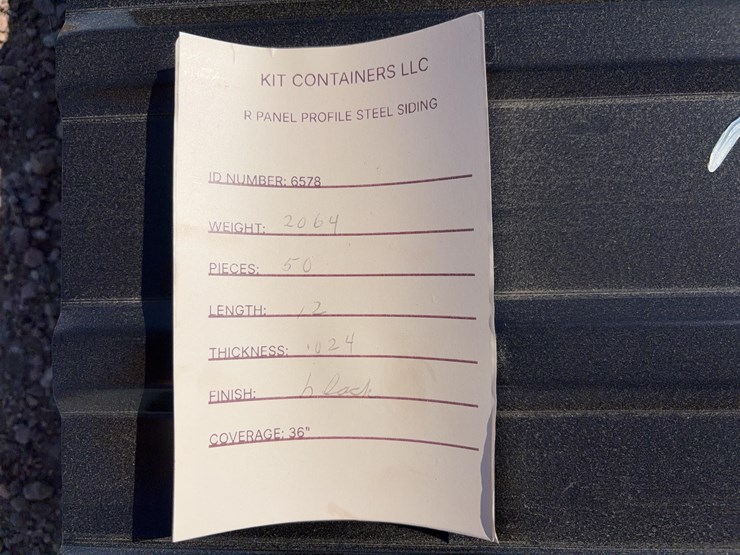 KIT CONTAINERS LLC
R PANEL PROFILE STEEL SIDING
ID NUMBER: 6578
WEIGHT: 2064
PIECES: 50
LENGTH: 12
THICKNESS: .024
FINISH: black
COVERAGE: 36"